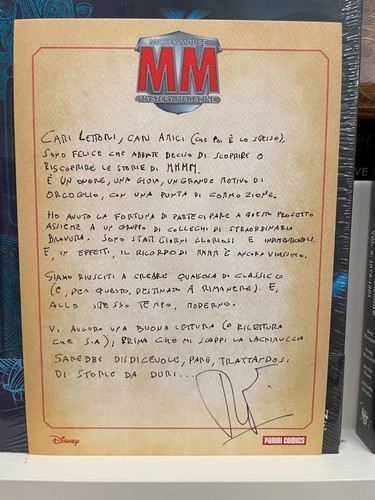 MICKEY MOUSE
MM
MYSTERY MAGAZINE
CARI LETTORI, CARI AMICI (CHE POI È LO STESSO),
SONO FELICE CHE ABBIATE DECISO DI SCOPRIRE O
RISCOPRIRE LE STORIE DI MMMM.
È UN ONORE, UNA GIOIA, UN GRANDE MOTIVO DI
ORGOGLIO, CON UNA PUNTA DI COMMOZIONE.
HO AVUTO LA FORTUNA DI PARTECIPARE A QUESTO PROGETTO
ASSIEME A UN GRUPPO DI COLLEGHI DI STRAORDINARIA
BRAVURA. SONO STATI GIORNI GLORIOSI E INDIMENTICABILI.
E, IN EFFETTI, IL RICORDO DI MMMM È ANCORA VIVISSIMO.
SIAMO RIUSCITI A CREARE QUALCOSA DI CLASSICO
(E, PER QUESTO, DESTINATO A RIMANERE). E,
ALLO STESSO TEMPO, MODERNO.
VI AUGURO UNA BUONA LETTURA (O RILETTURA
CHE SIA), PRIMA CHE MI SCAPPI LA LACRIMUCCIA.
SAREBBE DISDICEVOLE, PARE, TRATTANDOSI
DI STORIE DA DURI...
Disney
PANINI COMICS